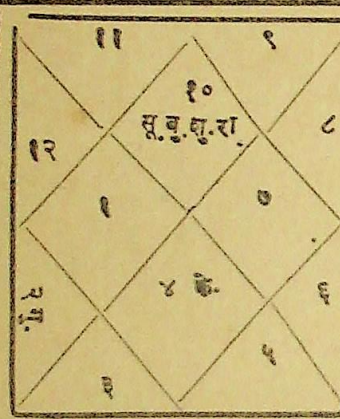 ११ ९
१०
सू.बु.शु.रा.
१२ ८
१ ७
४ के.
२ गु. ६
५
३